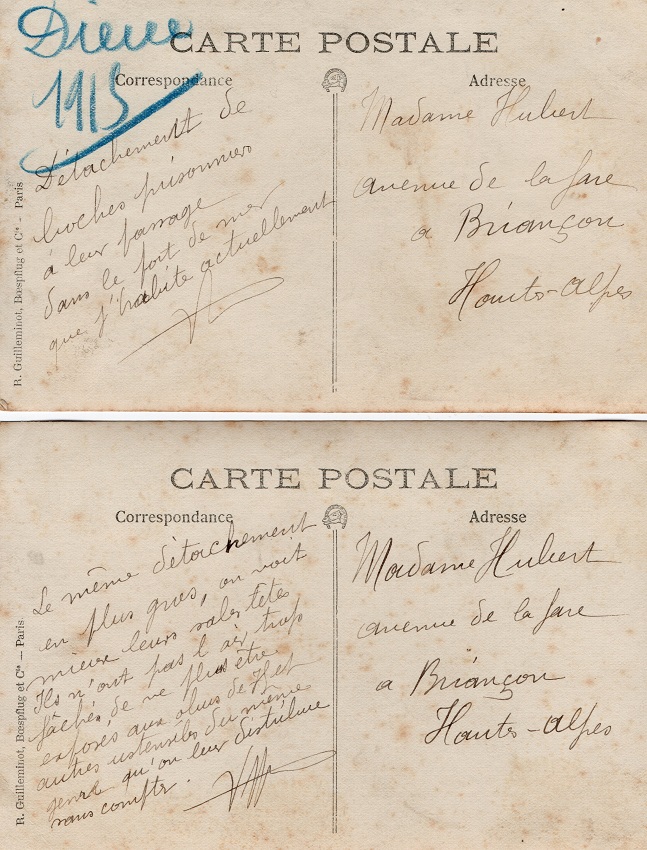 1915
CARTE POSTALE
Correspondance
Adresse
Détachement de
boches prisonniers
à leur passage
dans le fort de mer
que j'habite actuellement
Madame Hubert
avenue de la gare
a Briançon
Hautes-Alpes
R. Guilleminot, Bœspflug et Cie - Paris
CARTE POSTALE
Correspondance
Adresse
Le même détachement
en plus gros, on voit
mieux leurs sales têtes
Ils n'ont pas l'air trop
fâchés de ne plus être
exposés aux obus de 75 et
autres ustensiles du même
genre qu'on leur distribue
sans compter.
Madame Hubert
avenue de la gare
a Briançon
Hautes-Alpes
R. Guilleminot, Bœspflug et Cie — Paris